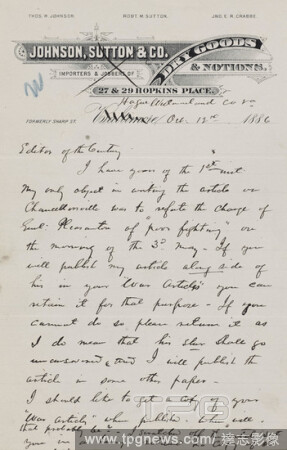 THOS. R. JOHNSON. ROBT. M. SUTTON. JNO. E. R. CRABBE.
JOHNSON, SUTTON & CO.
DRY GOODS
& NOTIONS.
IMPORTERS & JOBBERS OF
27 & 29 HOPKINS PLACE
W
Hague Westmoreland Co Va
FORMERLY SHARP ST. Oct. 12th 1886
Editor of the Century
I have yours of the 1st inst
My only object in writing the article on
Chancellorsville was to refute the charge of
Genl Pleasanton of "poor fighting" on
the morning of the 3d May - If you
will publish my article along side of
his in your War Articles you can
retain it for that purpose - If you
cannot do so, please return it as
I do mean that his slur shall go
unanswered, and I will publish the
article in some other paper -
I should like to get a copy of your
"War Articles" when published - When will
that probably be
you in
TPG
www.tpgnews.com | 達志影像